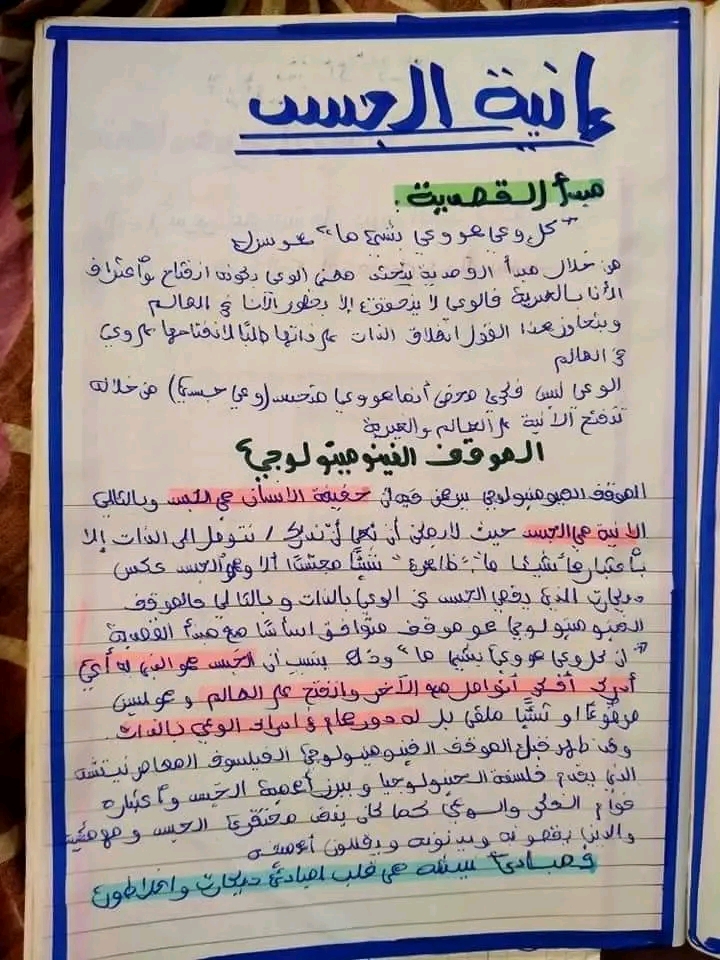 إنية الجسد
مبدأ القصدية.
"كل وعي هو وعي بشيء ما" هوسرل
من خلال مبدأ القصدية يتحدد معنى الوعي بكونه انفتاح واعتراف
الأنا بالغيرية فالوعي لا يتحقق إلا بحضور الأنا في العالم
ويتجاوز هذا القول انغلاق الذات على ذاتها طالبا لانفتاحها على وعي
في العالم
الوعي ليس فكري محض إنما هو وعي متجسد (وعي جسدي) من خلاله
تنفتح الآنية على العالم والغيرية
الموقف الفينومينولوجي
الموقف الفينومينولوجي يبرهن فيه أن حقيقة الإنسان هي الجسد وبالتالي
الإنية هي الجسد حيث لا يمكن أن نعي أن ندرك / نتوصل إلى الذات إلا
باعتبارها شيئا ما "ظاهرة" شيئا مجسدا ألا وهو الجسد عكس
ديكارت الذي يقصي الجسد في الوعي بالذات وبالتالي فالموقف
الفينومينولوجي هو موقف متوافق أساسا مع مبدأ القصدية
"إن كل وعي هو وعي بشيء ما" وذلك بسبب أن الجسد هو الذي به أعي
أدرك أفكر أتواصل مع الآخر وأنفتح على العالم وهو ليس
موضوعا أو شيئا ملقى بل له دور هام في إدراك الوعي بالذات.
وقد ظهر قبل الموقف الفينومينولوجي الفيلسوف المعاصر نيتشه
الذي يقدم فلسفة الجينولوجيا ويبرز أهمية الجسد واعتباره
قوام الفكر والوعي كما كان ينقد محتقري الجسد ومهمشيه
والذين يقصونه ويدينونه ويقللون أهميته
فمبادئ نيتشه هي قلب لمبادئ ديكارت وأفلاطون